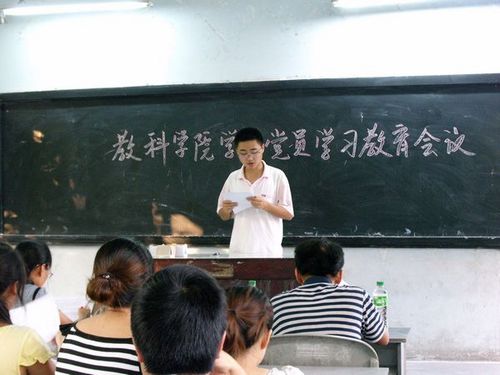 教科学院学党员学习教育会议